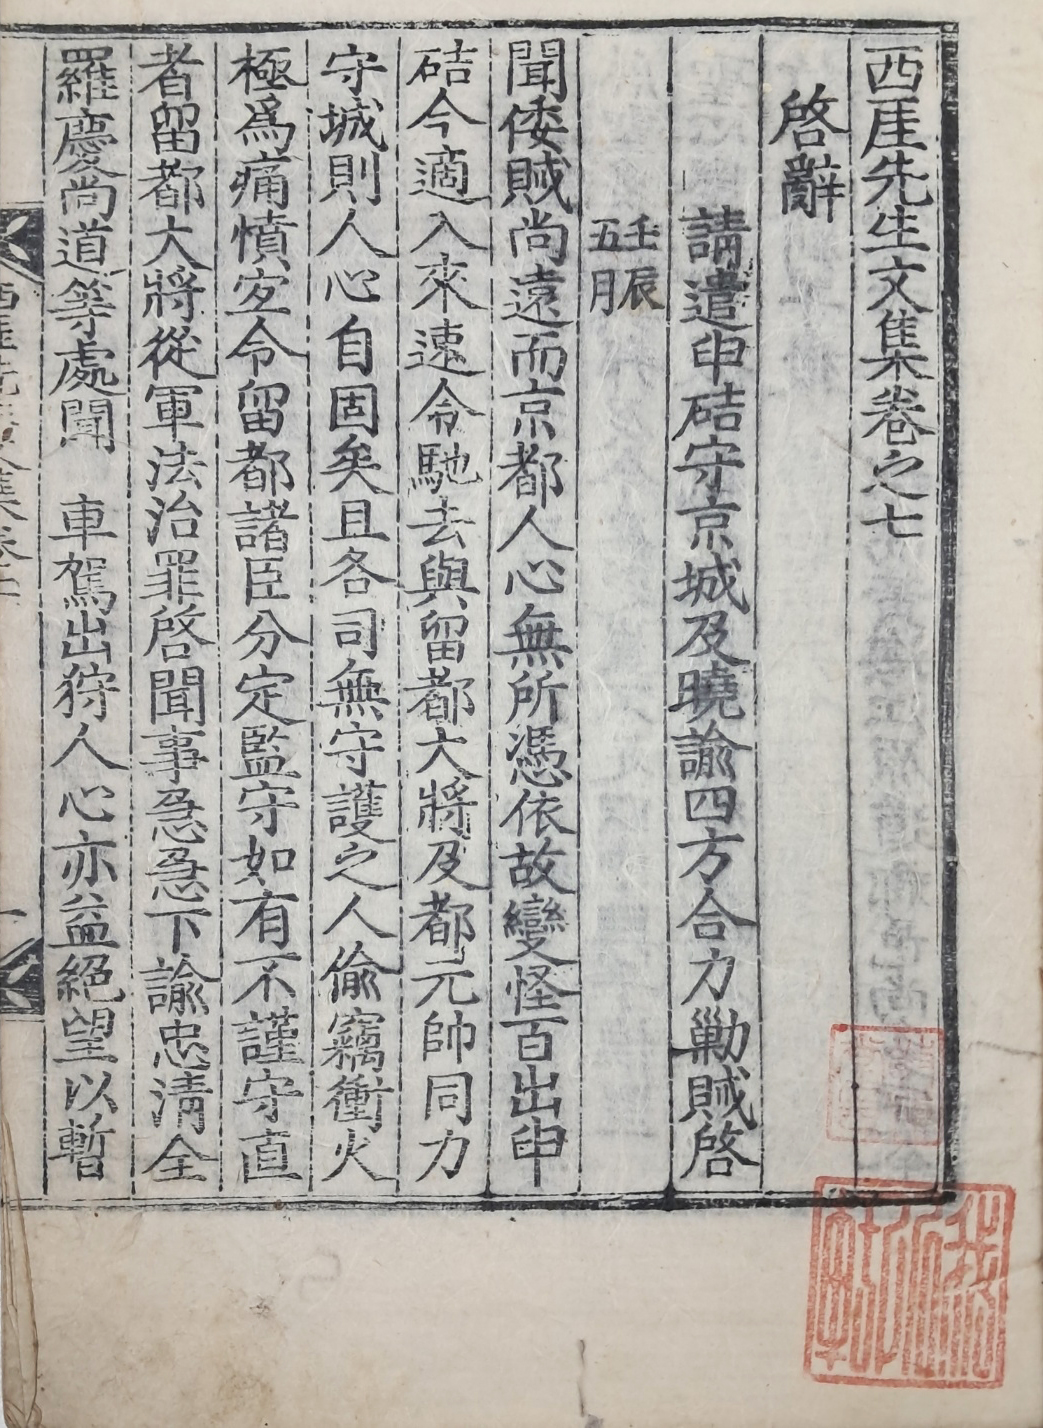 西厓先生文集卷之七
啓辭
請遣申硈守京城及曉諭四方合力勦賊啓
壬辰
五月
聞倭賊尚遠而京都人心無所憑依故變怪百出申
硈今適入來速令馳去與留都大將及都元帥同力
守城則人心自固矣且各司無守護之人偷竊衝火
極爲痛憤宜令留都諸臣分定監守如有不謹守直
者留都大將從軍法治罪啓聞事急急下諭忠清全
羅慶尚道等處聞 車駕出狩人心亦益絕望以暫